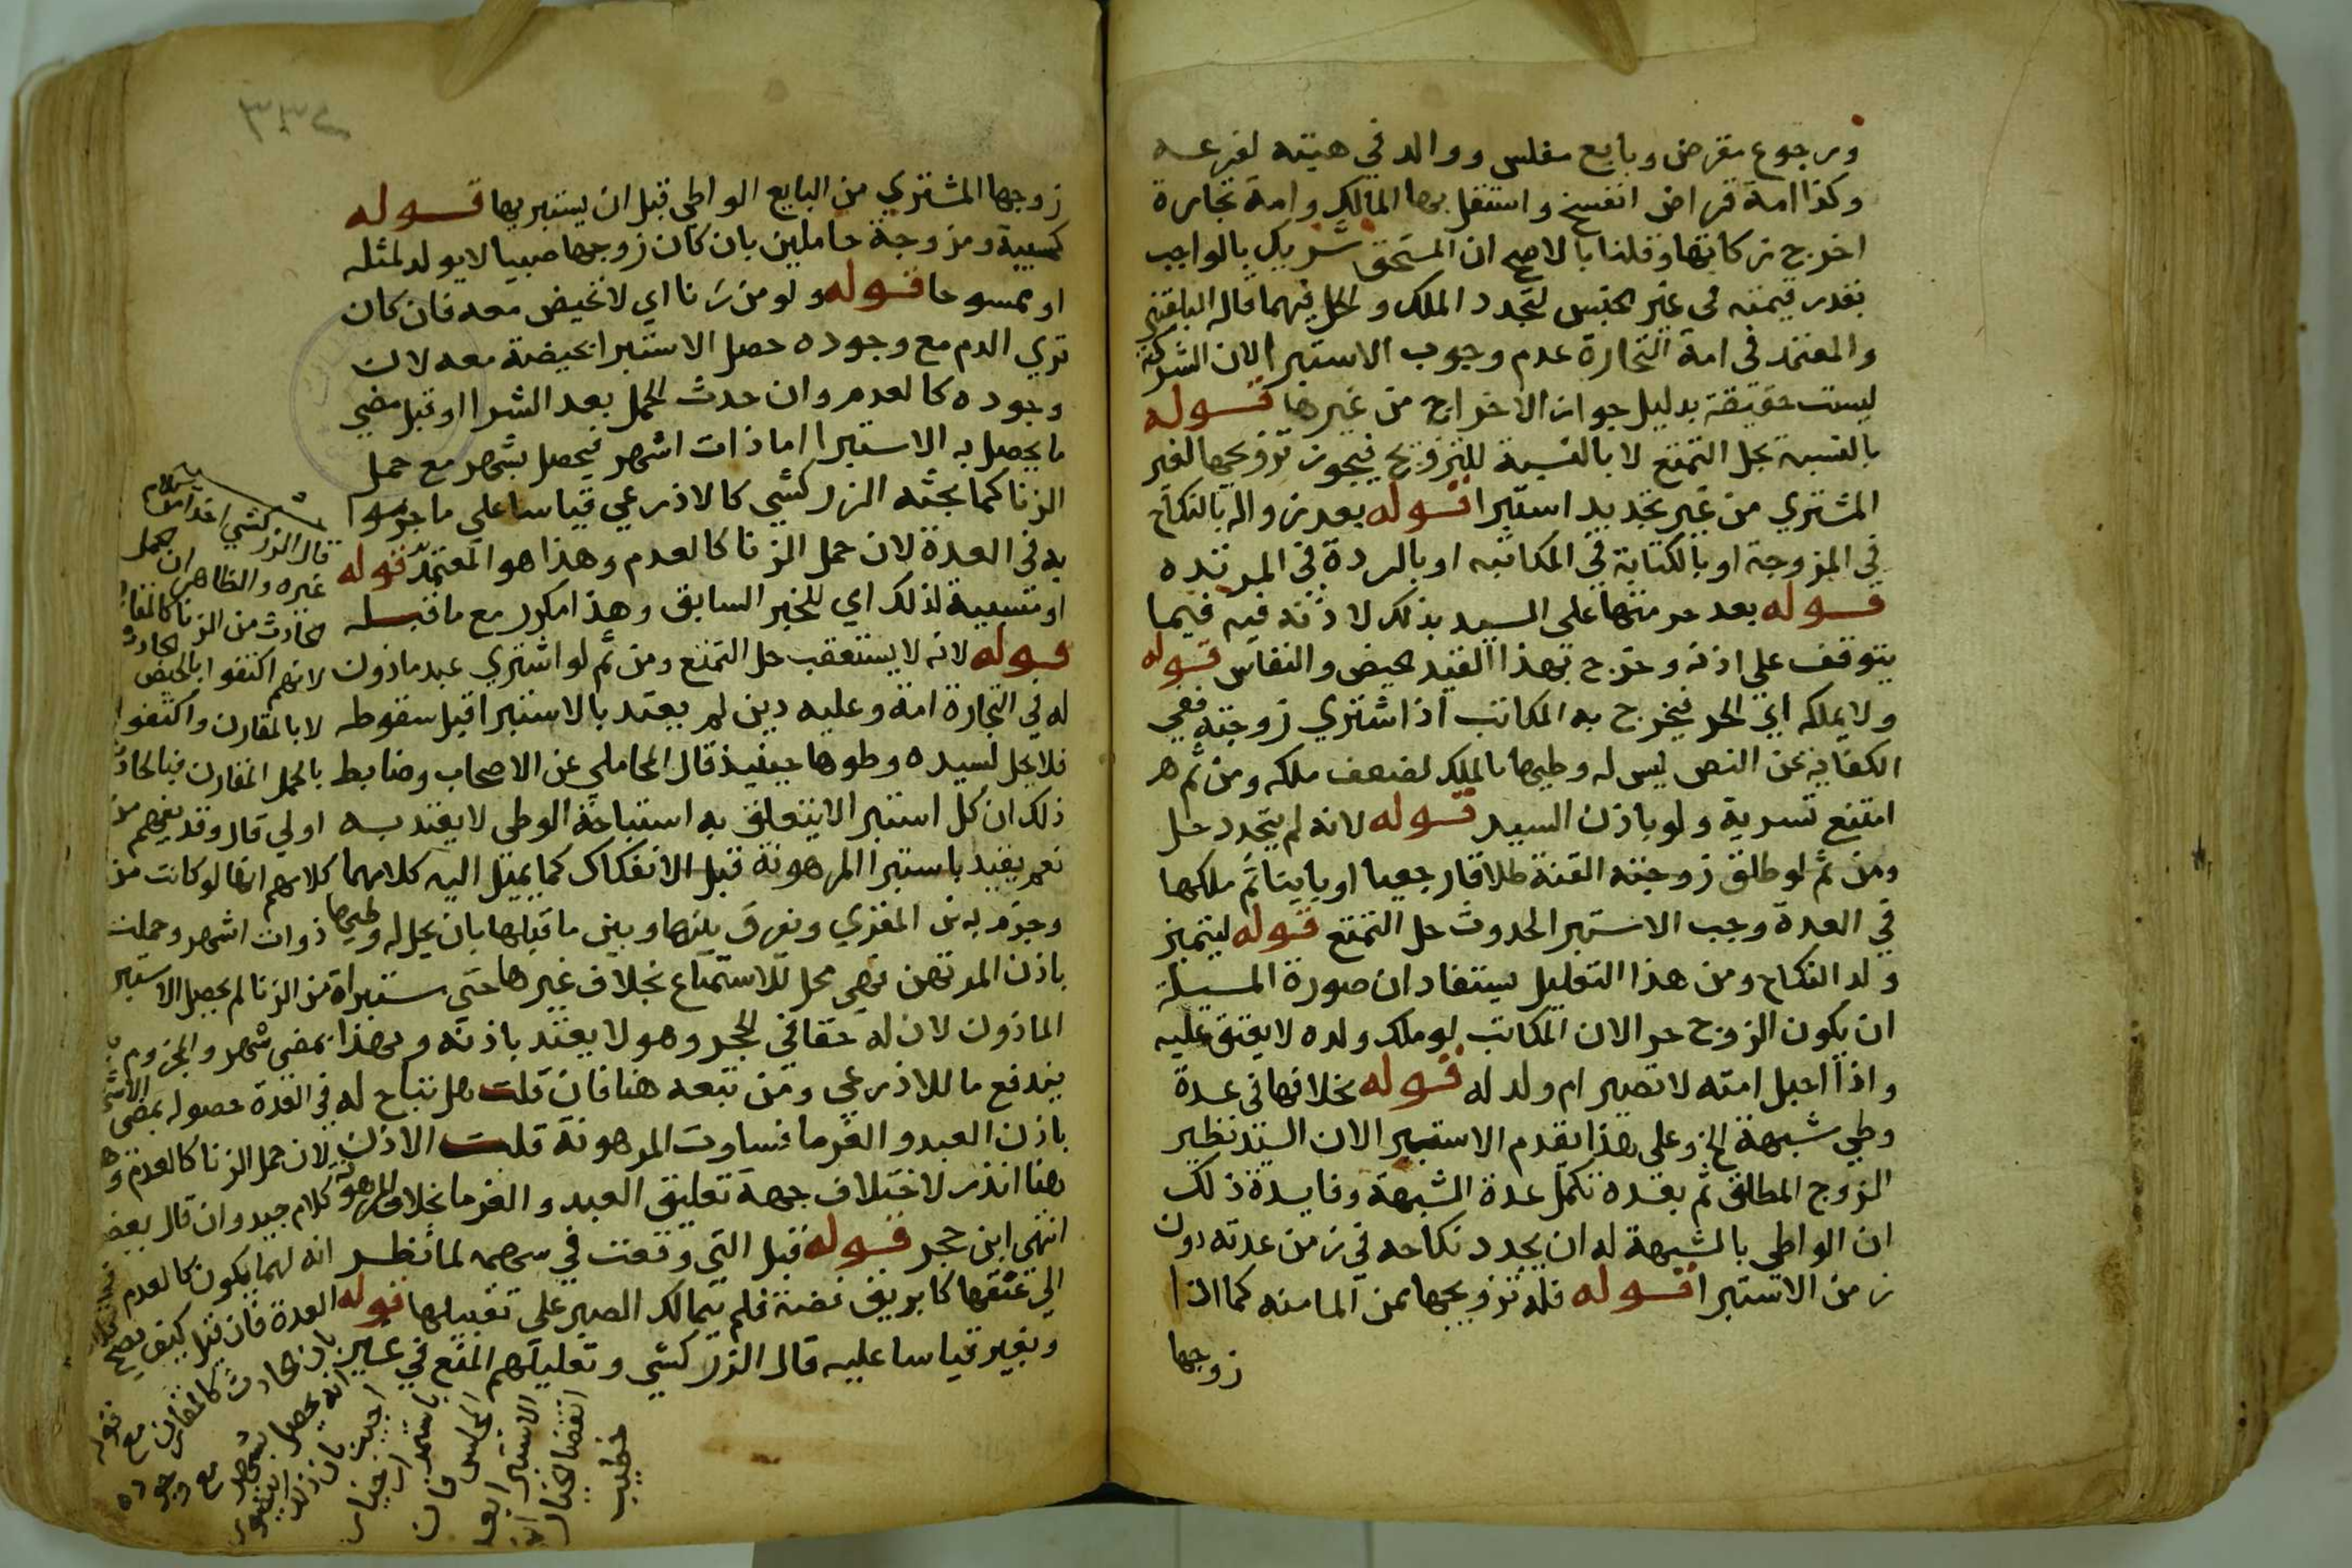 ورجوع مقرض وبايع مفلس ووالد في هبته لفرعه
وكذا امة قراض انفسخ واستقل بها المالك وامة تجارة
اخرج زكاتها وقلنا بالاصح ان المستحق شريك بالواجب
بقدر قيمته في غير الجنس لتجدد الملك والحل فيهما قاله البلقيني
والمعتمد في امة التجارة عدم وجوب الاستبرا لان الشركة
ليست حقيقة بدليل جواز الاخراج من غيرها قوله
بالنسبة بحل التمتع لا بالنسبة للتزويج فيجوز تزويجها لغير
المشتري من غير تجديد استبرا قوله بعد زواله بالنكاح
في المزوجة او بالكتابة في المكاتبه او بالردة في المرتده
قوله بعد حرمتها على السيد بذلك لا ذنه فيه فيما
يتوقف على اذنه وخرج بهذا القيد الحيض والنفاس قوله
ولا يملكه اي الحر فيخرج به المكاتب اذا اشتري زوجته ففي
الكفايه عن النص ليس له وطيها بالملك لضعف ملكه ومن ثم هر
امتنع تسريه ولو باذن السيد قوله لانه لم يتجدد حل
ومن ثم لو طلق زوجته القنة طلاقا رجعيا او باينا ثم ملكها
في العدة وجب الاستبرا لحدوث حل التمتع قوله ليتميز
ولد النكاح ومن هذا التعليل يستفاد ان صورة المسيلة
ان يكون الزوج حرا لان المكاتب لو ملك ولده لا يعتق عليه
واذا احبل امته لا تصير ام ولد له قوله بخلافها في عدة
وطي شبهة الخ وعلى هذا تقدم الاستبرا لان السيد نظير
الزوج المطلق ثم بعده تكمل عدة الشبهة وفايدة ذلك
ان الواطي بالشبهة له ان يجدد نكاحه في زمن عدته دون
زمن الاستبرا قوله فله تزويجها ممن الما منه كما اذا
زوجها
زوجها المشتري من البايع الواطي قبل ان يستبريها قوله
كمسبية ومزوجة حاملين بان كان زوجها صبيا لا يولد لمثله
او ممسوحا قوله ولو من زنا اي لا تحيض معه فان كان
تري الدم مع وجوده حصل الاستبرا بحيضة معه لان
وجوده كالعدم وان حدث الحمل بعد الشرا او قبل مضي
ما يحصل به الاستبرا اما ذات اشهر فيحصل بشهر مع حمل
الزنا كما بحثه الزركشي كالاذرعي قياسا على ما جزموا
به في العدة لان حمل الزنا كالعدم وهذا هو المعتمد قوله
او متسببة لذلك اي للخبر السابق وهذا مكرر مع ما قبله
قوله لانه لا يستعقب حل التمتع ومن ثم لو اشتري عبد ماذون
له في التجارة امة وعليه دين لم يعتد بالاستبرا قبل سقوطه
فلا يحل لسيده وطوها حينيذ قال المحاملي عن الاصحاب وضابط
ذلك ان كل استبرا لا يتعلق به استباحة الوطي لا يعتد به
نعم يعتد باستبرا المرهونة قبل الانفكاك كما يميل اليه كلامهما
وجزم به بن المقري وتفرق بينها وبين ما قبلها بان يحل له وطيها
باذن المرتهن فهي محل للاستمتاع بخلاف غيرها حتي مستبراة
الماذون لان له حقا في الحجر وهو لا يعتد باذنه وبهذا
يندفع ما للاذرعي ومن تبعه هنا فان قلت هل تباح له
باذن العبد والغرما فساوت المرهونة قلت الاذن
هنا اندر لاختلاف جهة تعليق العبد والغرما بخلاف المرهونة
انتهي ابن حجر قوله قبل التي وقعت في سهمه لما نظر
الي عنقها كابريق فضة فلم يتمالك الصبر على تقبيلها قوله
وبغير قياسا عليه قال الزركشي وتعليلهم المنع في
قال الزركشي اخذا من كلام
غيره والظاهر ان الحمل
الحادث من الزنا كالمقارن
لانهم اكتفوا بالحيض الحادث
لا بالمقارن واكتفوا
بالحمل المقارن فبالحادث
اولي قال وقد يفهم من
كلامهم انها لو كانت من
ذوات اشهر وحملت
من الزنا لم يحصل الاستبر
بمضي شهر والمجزوم
في العدة حصوله بمضي الاشهر
لان حمل الزنا كالعدم وهو
كلام جيد وان قال بعض
انه لهما يكون كالعدم
العدة فان قيل كيف يصح
بان الحادث كالمقارن مع قوله
انه يحصل بشهر مع وجوده
اجيب بان ذلك
خطيب